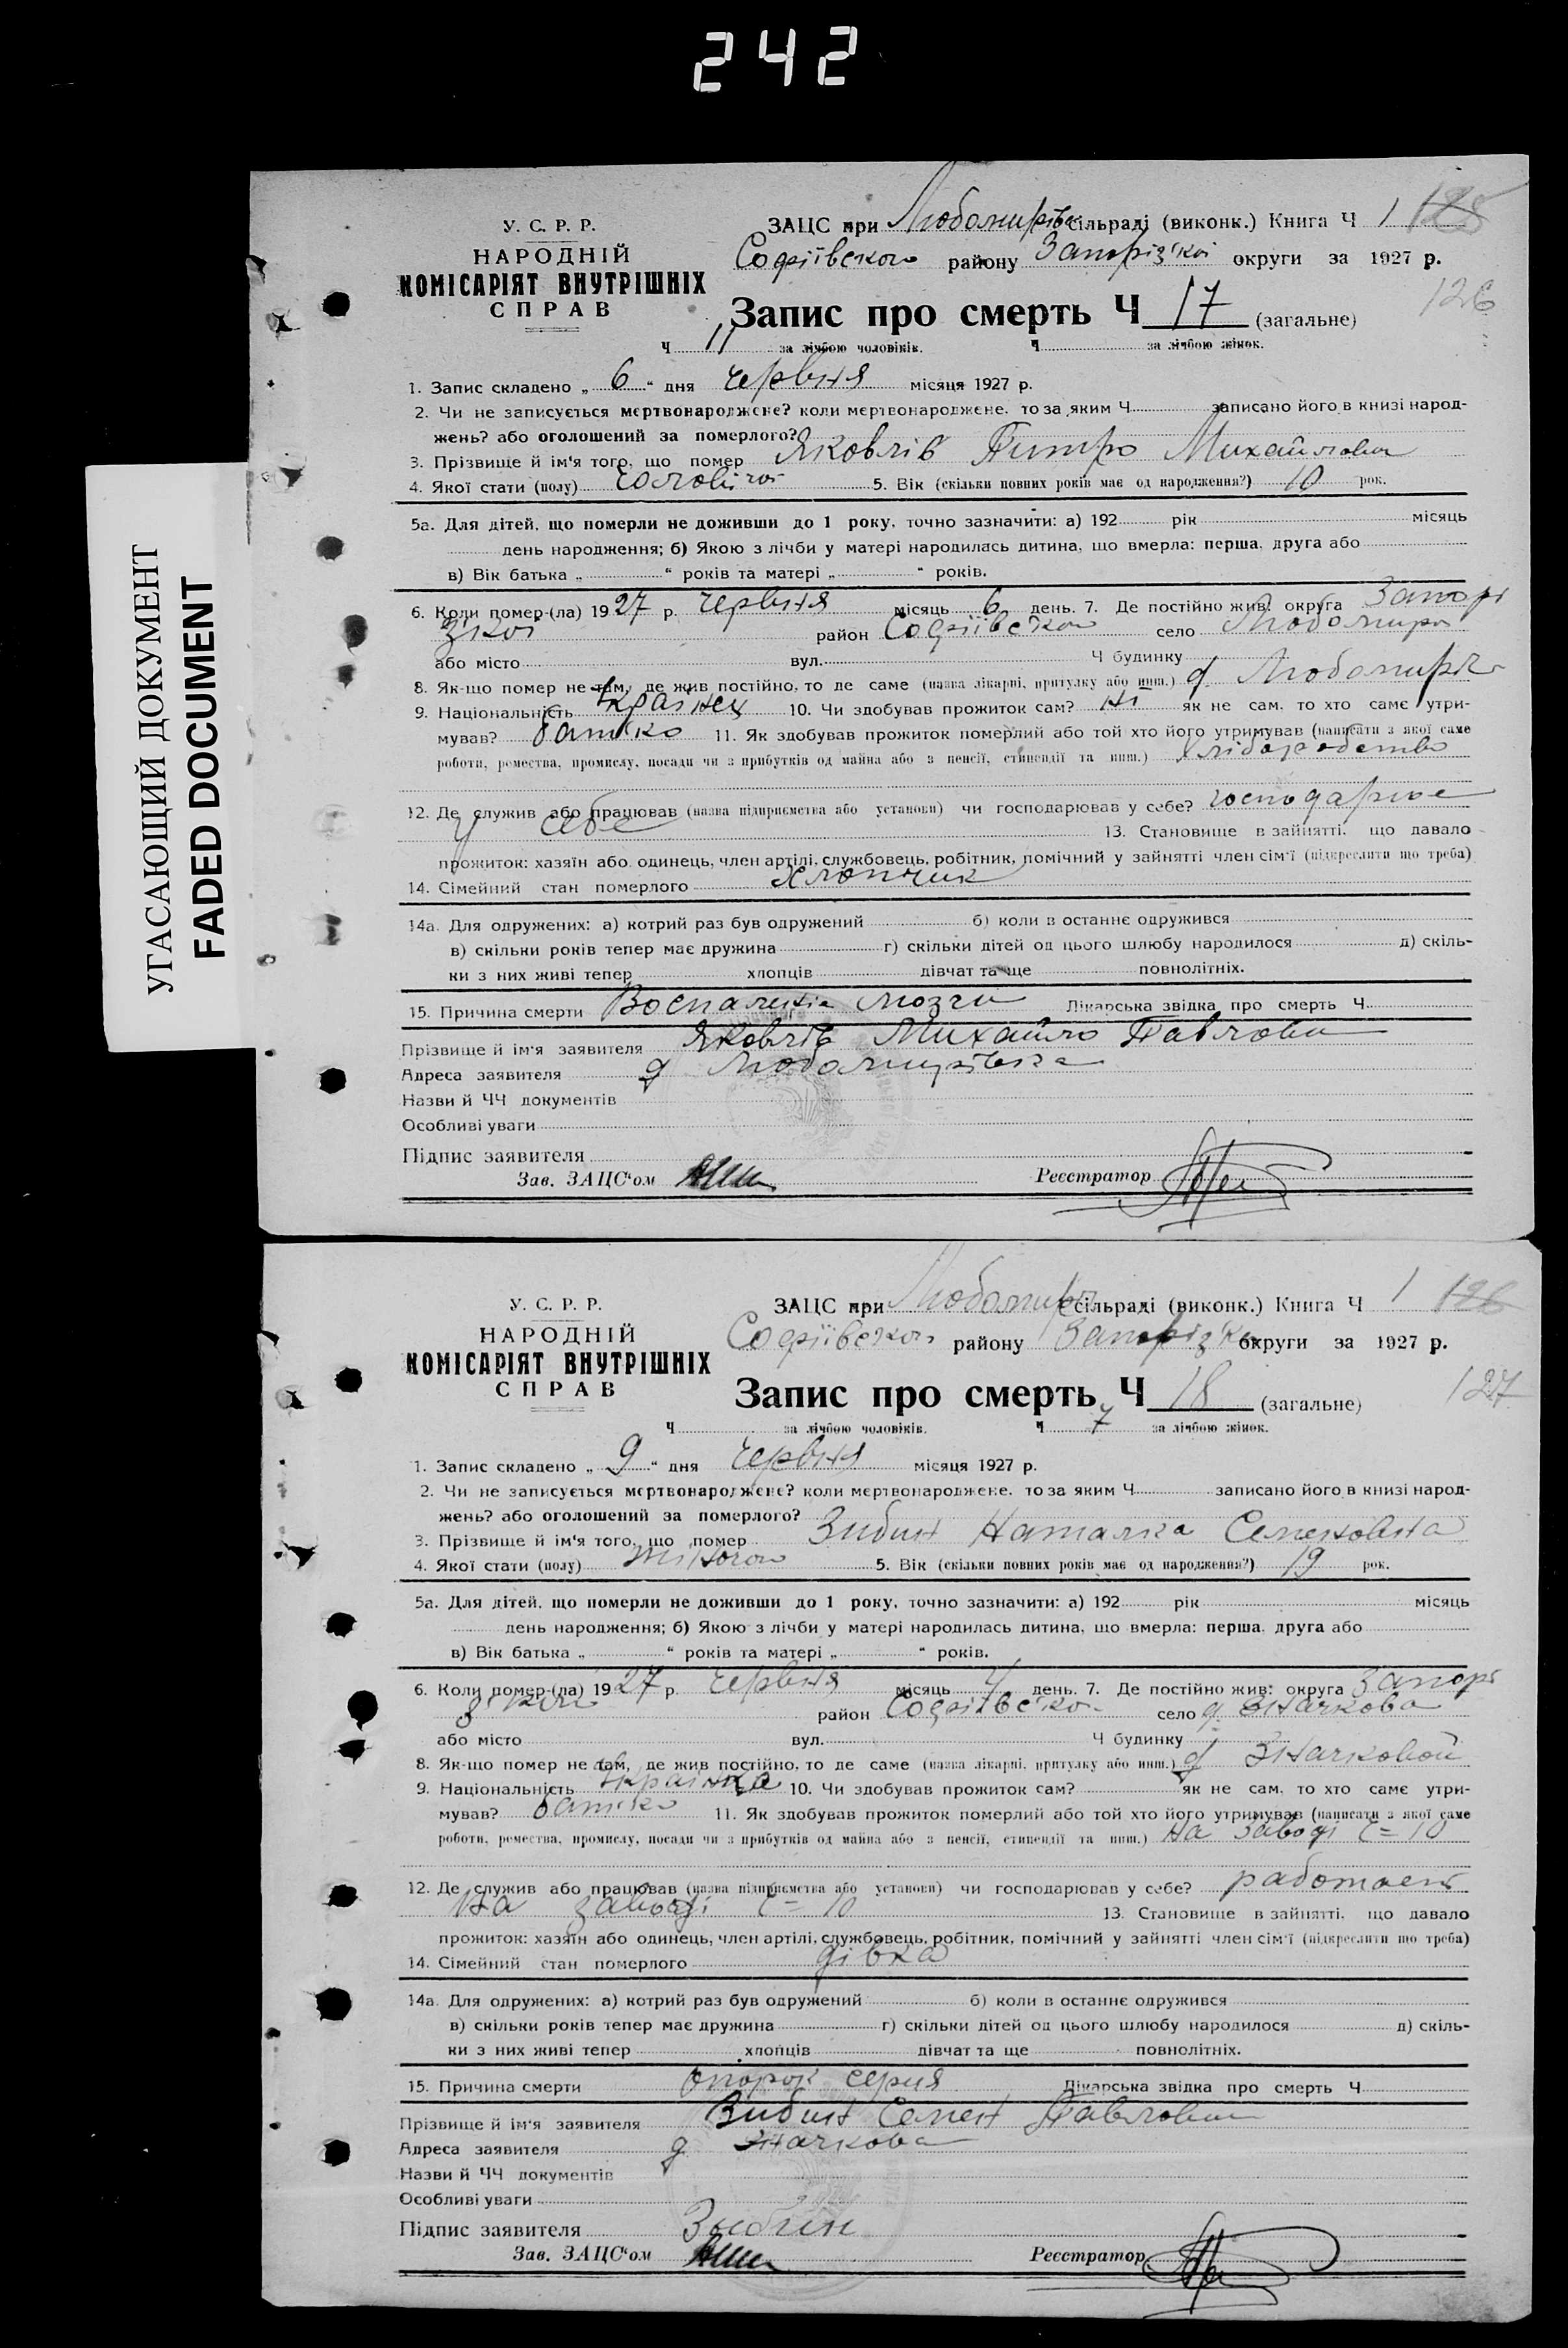 242
УГАСАЮЩИЙ ДОКУМЕНТ
FADED DOCUMENT
У. С. Р. Р.
НАРОДНІЙ
КОМІСАРІЯТ ВНУТРІШНІХ
СПРАВ
ЗАЦС при Любомирівк сільраді (виконк.) Книга Ч 1 125
Софіївского району Запорізкої округи за 1927 р.
126
Запис про смерть Ч 17 (загальне)
Ч 11 за лічбою чоловіків. Ч за лічбою жінок.
1. Запис складено „ 6 “ дня червня місяця 1927 р.
2. Чи не записується мертвонароджене? коли мертвонароджене, то за яким Ч записано його в книзі народ-
жень? або оголошений за померлого?
3. Прізвище й ім'я того, що помер Яковлів Питро Михайлович
4. Якої стати (полу) чоловічої 5. Вік (скільки повних років має од народження?) 10 рок.
5а. Для дітей, що померли не доживши до 1 року, точно зазначити: а) 192 рік місяць
день народження; б) Якою з лічби у матері народилась дитина, що вмерла: перша, друга або
в) Вік батька „ “ років та матері „ “ років.
6. Коли помер-(ла) 1927 р. червня місяць 6 день. 7. Де постійно жив: округа Запорі
зікої район Софіївском село Любомирів
або місто вул. Ч будинку
8. Як-що помер не там, де жив постійно, то де саме (назва лікарні, притулку або инш.) д Любомирка
9. Національність Українец 10. Чи здобував прожиток сам? ні як не сам, то хто саме утри-
мував? батько 11. Як здобував прожиток померлий або той хто його утримував (написати з якої саме
роботи, ремества, промислу, посади чи з прибутків од майна або з пенсії, стипендії та инш.) Хліборобство
12. Де служив або працював (назва підприємства або установи) чи господарював у себе? господарює
У себе 13. Становище в зайнятті, що давало
прожиток: хазяїн або одинець, член артілі, службовець, робітник, помічний у зайнятті член сім'ї (підкреслити що треба)
14. Сімейний стан померлого Хлопчик
14а. Для одружених: а) котрий раз був одружений б) коли в останнє одружився
в) скільки років тепер має дружина г) скільки дітей од цього шлюбу народилося д) скіль-
ки з них живі тепер хлопців дівчат та ще повнолітніх.
15. Причина смерти Воспаленіе мозги Лікарська звідка про смерть Ч
Прізвище й ім'я заявителя Яковлів Михайло Павлович
Адреса заявителя д Любомирівка
Назви й ЧЧ документів
Особливі уваги
Підпис заявителя
Зав. ЗАЦС‘ом Реєстратор
У. С. Р. Р.
НАРОДНІЙ
КОМІСАРІЯТ ВНУТРІШНІХ
СПРАВ
ЗАЦС при Любомирк сільраді (виконк.) Книга Ч 1 126
Софіївского району Запорізкої округи за 1927 р.
127
Запис про смерть Ч 18 (загальне)
Ч за лічбою чоловіків. Ч 7 за лічбою жінок.
1. Запис складено „ 9 “ дня червня місяця 1927 р.
2. Чи не записується мертвонароджене? коли мертвонароджене, то за яким Ч записано його в книзі народ-
жень? або оголошений за померлого?
3. Прізвище й ім'я того, що помер Зибин Наталка Семеновна
4. Якої стати (полу) жіночої 5. Вік (скільки повних років має од народження?) 19 рок.
5а. Для дітей, що померли не доживши до 1 року, точно зазначити: а) 192 рік місяць
день народження; б) Якою з лічби у матері народилась дитина, що вмерла: перша, друга або
в) Вік батька „ “ років та матері „ “ років.
6. Коли помер-(ла) 1927 р. червня місяць 4 день. 7. Де постійно жив: округа Запорі
зікої район Софіївско село д. Значкова
або місто вул. Ч будинку
8. Як-що помер не там, де жив постійно, то де саме (назва лікарні, притулку або инш.) д Значковой
9. Національність Українка 10. Чи здобував прожиток сам? як не сам, то хто саме утри-
мував? батько 11. Як здобував прожиток померлий або той хто його утримував (написати з якої саме
роботи, ремества, промислу, посади чи з прибутків од майна або з пенсії, стипендії та инш.) на заводі 10
12. Де служив або працював (назва підприємства або установи) чи господарював у себе? работает
на заводі 10 13. Становище в зайнятті, що давало
прожиток: хазяїн або одинець, член артілі, службовець, робітник, помічний у зайнятті член сім'ї (підкреслити що треба)
14. Сімейний стан померлого дівка
14а. Для одружених: а) котрий раз був одружений б) коли в останнє одружився
в) скільки років тепер має дружина г) скільки дітей од цього шлюбу народилося д) скіль-
ки з них живі тепер хлопців дівчат та ще повнолітніх.
15. Причина смерти Опорок серця Лікарська звідка про смерть Ч
Прізвище й ім'я заявителя Зибин Семен Павлович
Адреса заявителя д Значкова
Назви й ЧЧ документів
Особливі уваги
Підпис заявителя Зыбин
Зав. ЗАЦС‘ом Реєстратор